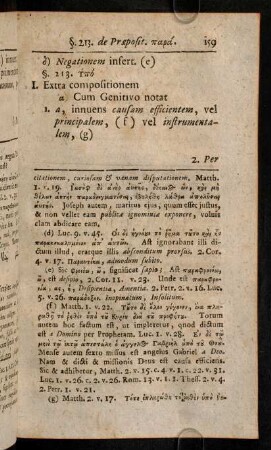 §. 213. de Præposit. παρά. 159
d) Negationem insert. (e)
§. 213. Ὑπὸ
I. Extra compositionem
a Cum Genitivo notat
1. a, innuens causam efficientem, vel
principalem, (f) vel instrumenta-
lem, (g)
2. Per
citationem, curiosam & vanam disputationem, Matth.
1. v. 19. Ἰωσὴφ δὲ ὁ ἀνὴρ αὐτῆς, δίκαιος ὢν, καὶ μὴ
θέλων αὐτὴν παραδειγματίσαι, ἐβουλήθη λάθρα ἀπολῦσαι
αὐτήν. Joseph autem, maritus ejus, quum esset justus,
& non vellet eam publicæ ignominiæ exponere, voluit
clam abdicare eam.
(d) Luc. 9. v. 45. Οἱ δὲ ἠγνόουν τὸ ῥῆμα τοῦτο, καὶ ἦν
παρακεκαλυμμένον ἀπ' αὐτῶν. Ast ignorabant illi di-
ctum illud, eratque illis absconditum prorsus. 2. Cor.
4. v. 17. Παραυτίκα, admodum subito.
(e) Sic φρονέω, ῶ, significat sapio; Ast παραφρονέω,
ῶ, est desipio, 2. Cor. 11. v. 23. Unde est παραφρο-
νία, ας, ἡ, Desipientia, Amentia. 2. Petr. 2. v. 16. Luc.
5. v. 26. παράδοξον, inopinatum, Insolitum.
(f) Matth. 1. v. 22. Τοῦτο δὲ ὅλον γέγονεν, ἵνα πλη-
ρωθῇ τὸ ῥηθὲν ὑπὸ τοῦ Κυρίου διὰ τοῦ προφήτου. Totum
autem hoc factum est, ut impleretur, quod dictum
est a Domino per Prophetam. Luc. 1. v. 26. Ἐν δὲ τῷ
μηνὶ τῷ ἕκτῳ ἀπεστάλη ὁ ἄγγελος Γαβριὴλ ὑπὸ τοῦ Θεοῦ.
Mense autem sexto missus est angelus Gabriel a Deo.
Nam & dicti & missionis Deus est causa efficiens.
Sic & adhibetur, Matth. 2. v. 15. c. 4. v. 1. c. 22. v. 31.
Luc. 1. v. 26. c. 2. v. 26. Rom. 13. v. 1. 1. Thess. 2. v. 4.
2. Petr. 1. v. 21.
(g) Matth. 2. v. 17. Τότε ἐπληρώθη τὸ ῥηθὲν ὑπὸ